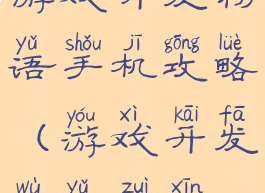 游戏开发物
yǔ shǒu jī gōng lüè
语手机攻略
yóu xì kāi fā
(游戏开发
wù yǔ zuì xīn